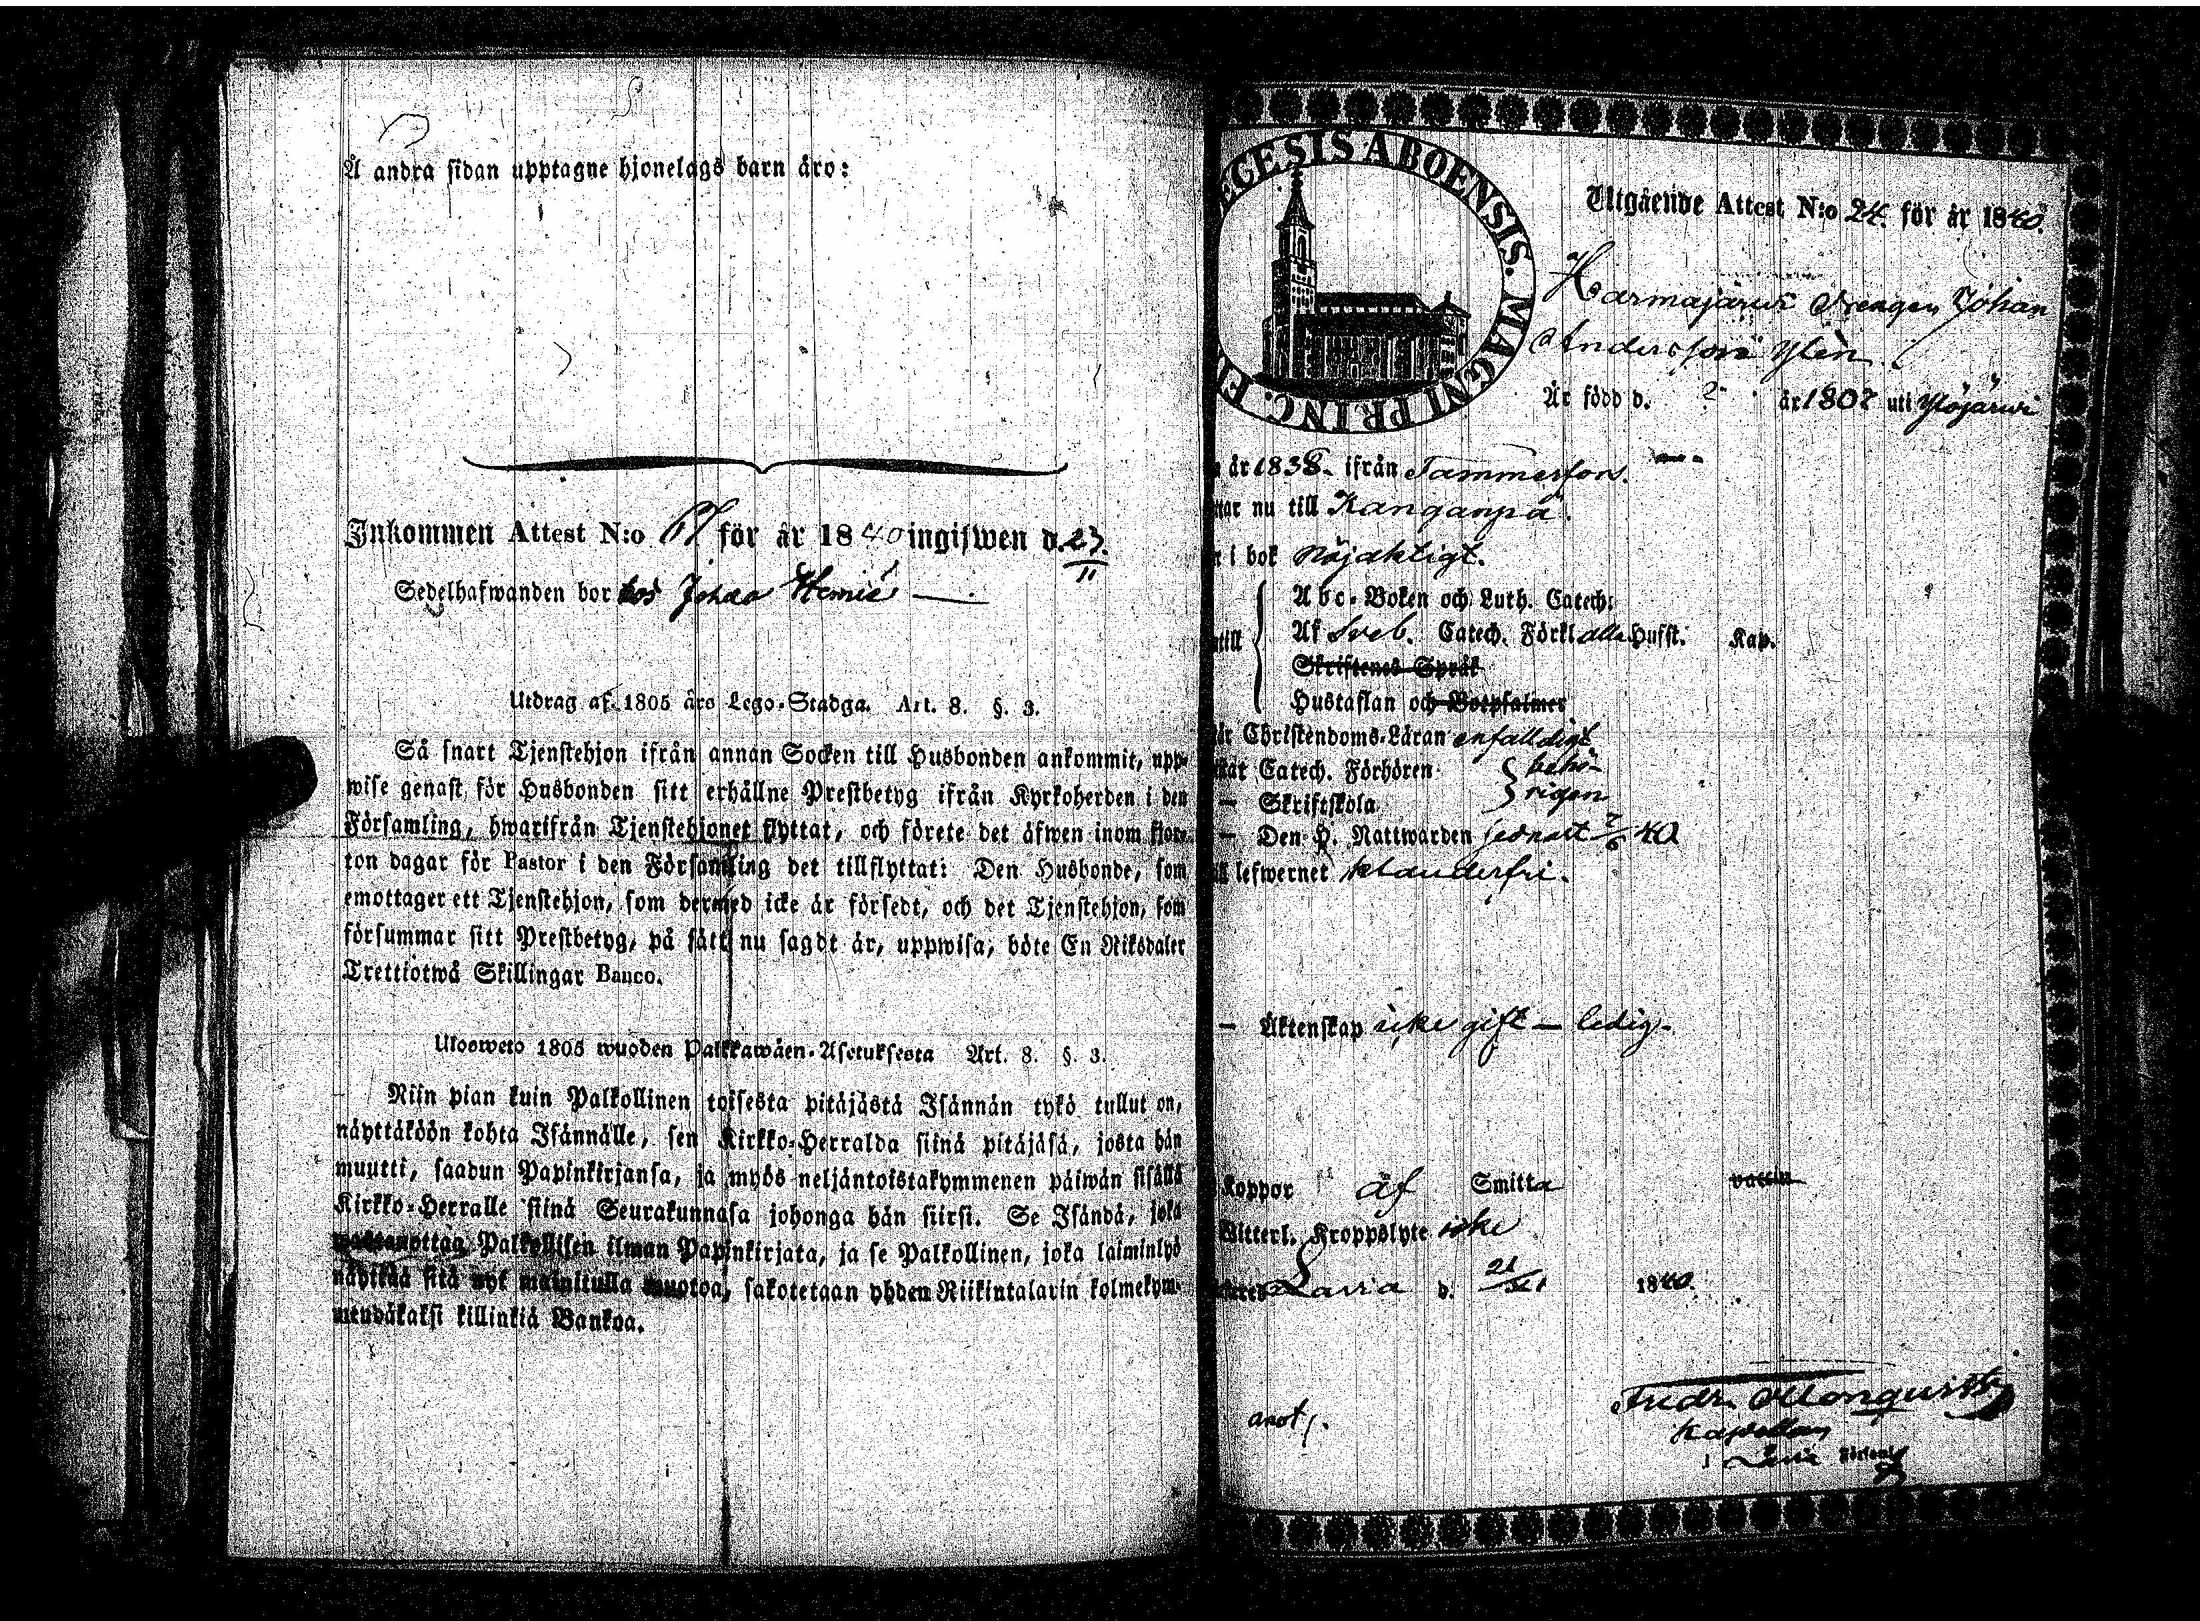 Å andra sidan upptagne hjonelags barn äro:
Inkommen Attest N:o 67 för år 1840 ingifwen d. 23/11
Sedelhafwanden bor hos Johan
Utdrag af 1805 års Lego-Stadga. Art. 8. §. 3.
Så snart Tjenstehjon ifrån annan Socken till Husbonden ankommit, upp-
wise genast för Husbonden sitt erhållne Prestbetyg ifrån Kyrkoherden i den
Församling, hwarifrån Tjenstehjonet flyttat, och förete det äfwen inom fjor-
ton dagar för Pastor i den Församling det tillflyttat: Den Husbonde, som
emottager ett Tjenstehjon, som dermed icke är försedt, och det Tjenstehjon, som
försummar sitt Prestbetyg, på sätt nu sagdt är, uppwisa, böte En Riksdaler
Trettiotwå Skillingar Banco.
Ulosweto 1805 wuoden Palkkawäen-Asetuksesta Art. 8. §. 3.
Niin pian kuin Palkollinen toisesta pitäjästä Isännän tykö tullut on,
näyttäköön kohta Isännälle, sen Kirkko-Herralda siinä pitäjäsä, josta hän
muutti, saadun Papinkirjansa, ja myös neljäntoistakymmenen päiwän sisällä
Kirkko-Herralle siinä Seurakunnasa johonga hän siirsi. Se Isändä, joka
wastanottaa Palkollisen ilman Papinkirjata, ja se Palkollinen, joka laiminlyö
näyttää sitä nyt mainitulla muotoa, sakotetaan yhden Riikintalarin kolmekym-
mendäkaksi killinkiä Bankoa.
EGESIS ABOENSIS. MAGNI PRINC. FI
Utgående Attest N:o 24. för år 1840.
Drengen Johan
Andersson Ylén
Är född d. ? år 1807 uti Ylöjärwi
år 1838 ifrån Tammerfors.
nu till Kanganpä.
i bok nöjaktigt.
Abc-Boken och Luth. Catech:
till Af Sveb. Catech. Förkl alla Hufst. Kap.
Skriftenes Språk
Hustaflan och Botpsalmer
Christendoms-Läran enfalldigt
Catech. Förhören behö-
— Skriftskola rigen
— Den H. Nattwarden sednast 7/6 40
lefwernet klanderfri.
— Äktenskap icke gift — ledig.
Koppor af Smitta vaccin
Witterl. Kroppslyte icke
Lavia d. 21/11 1840.
anot.
Fredr. Monquist
Kapellan
i Lavia Förs